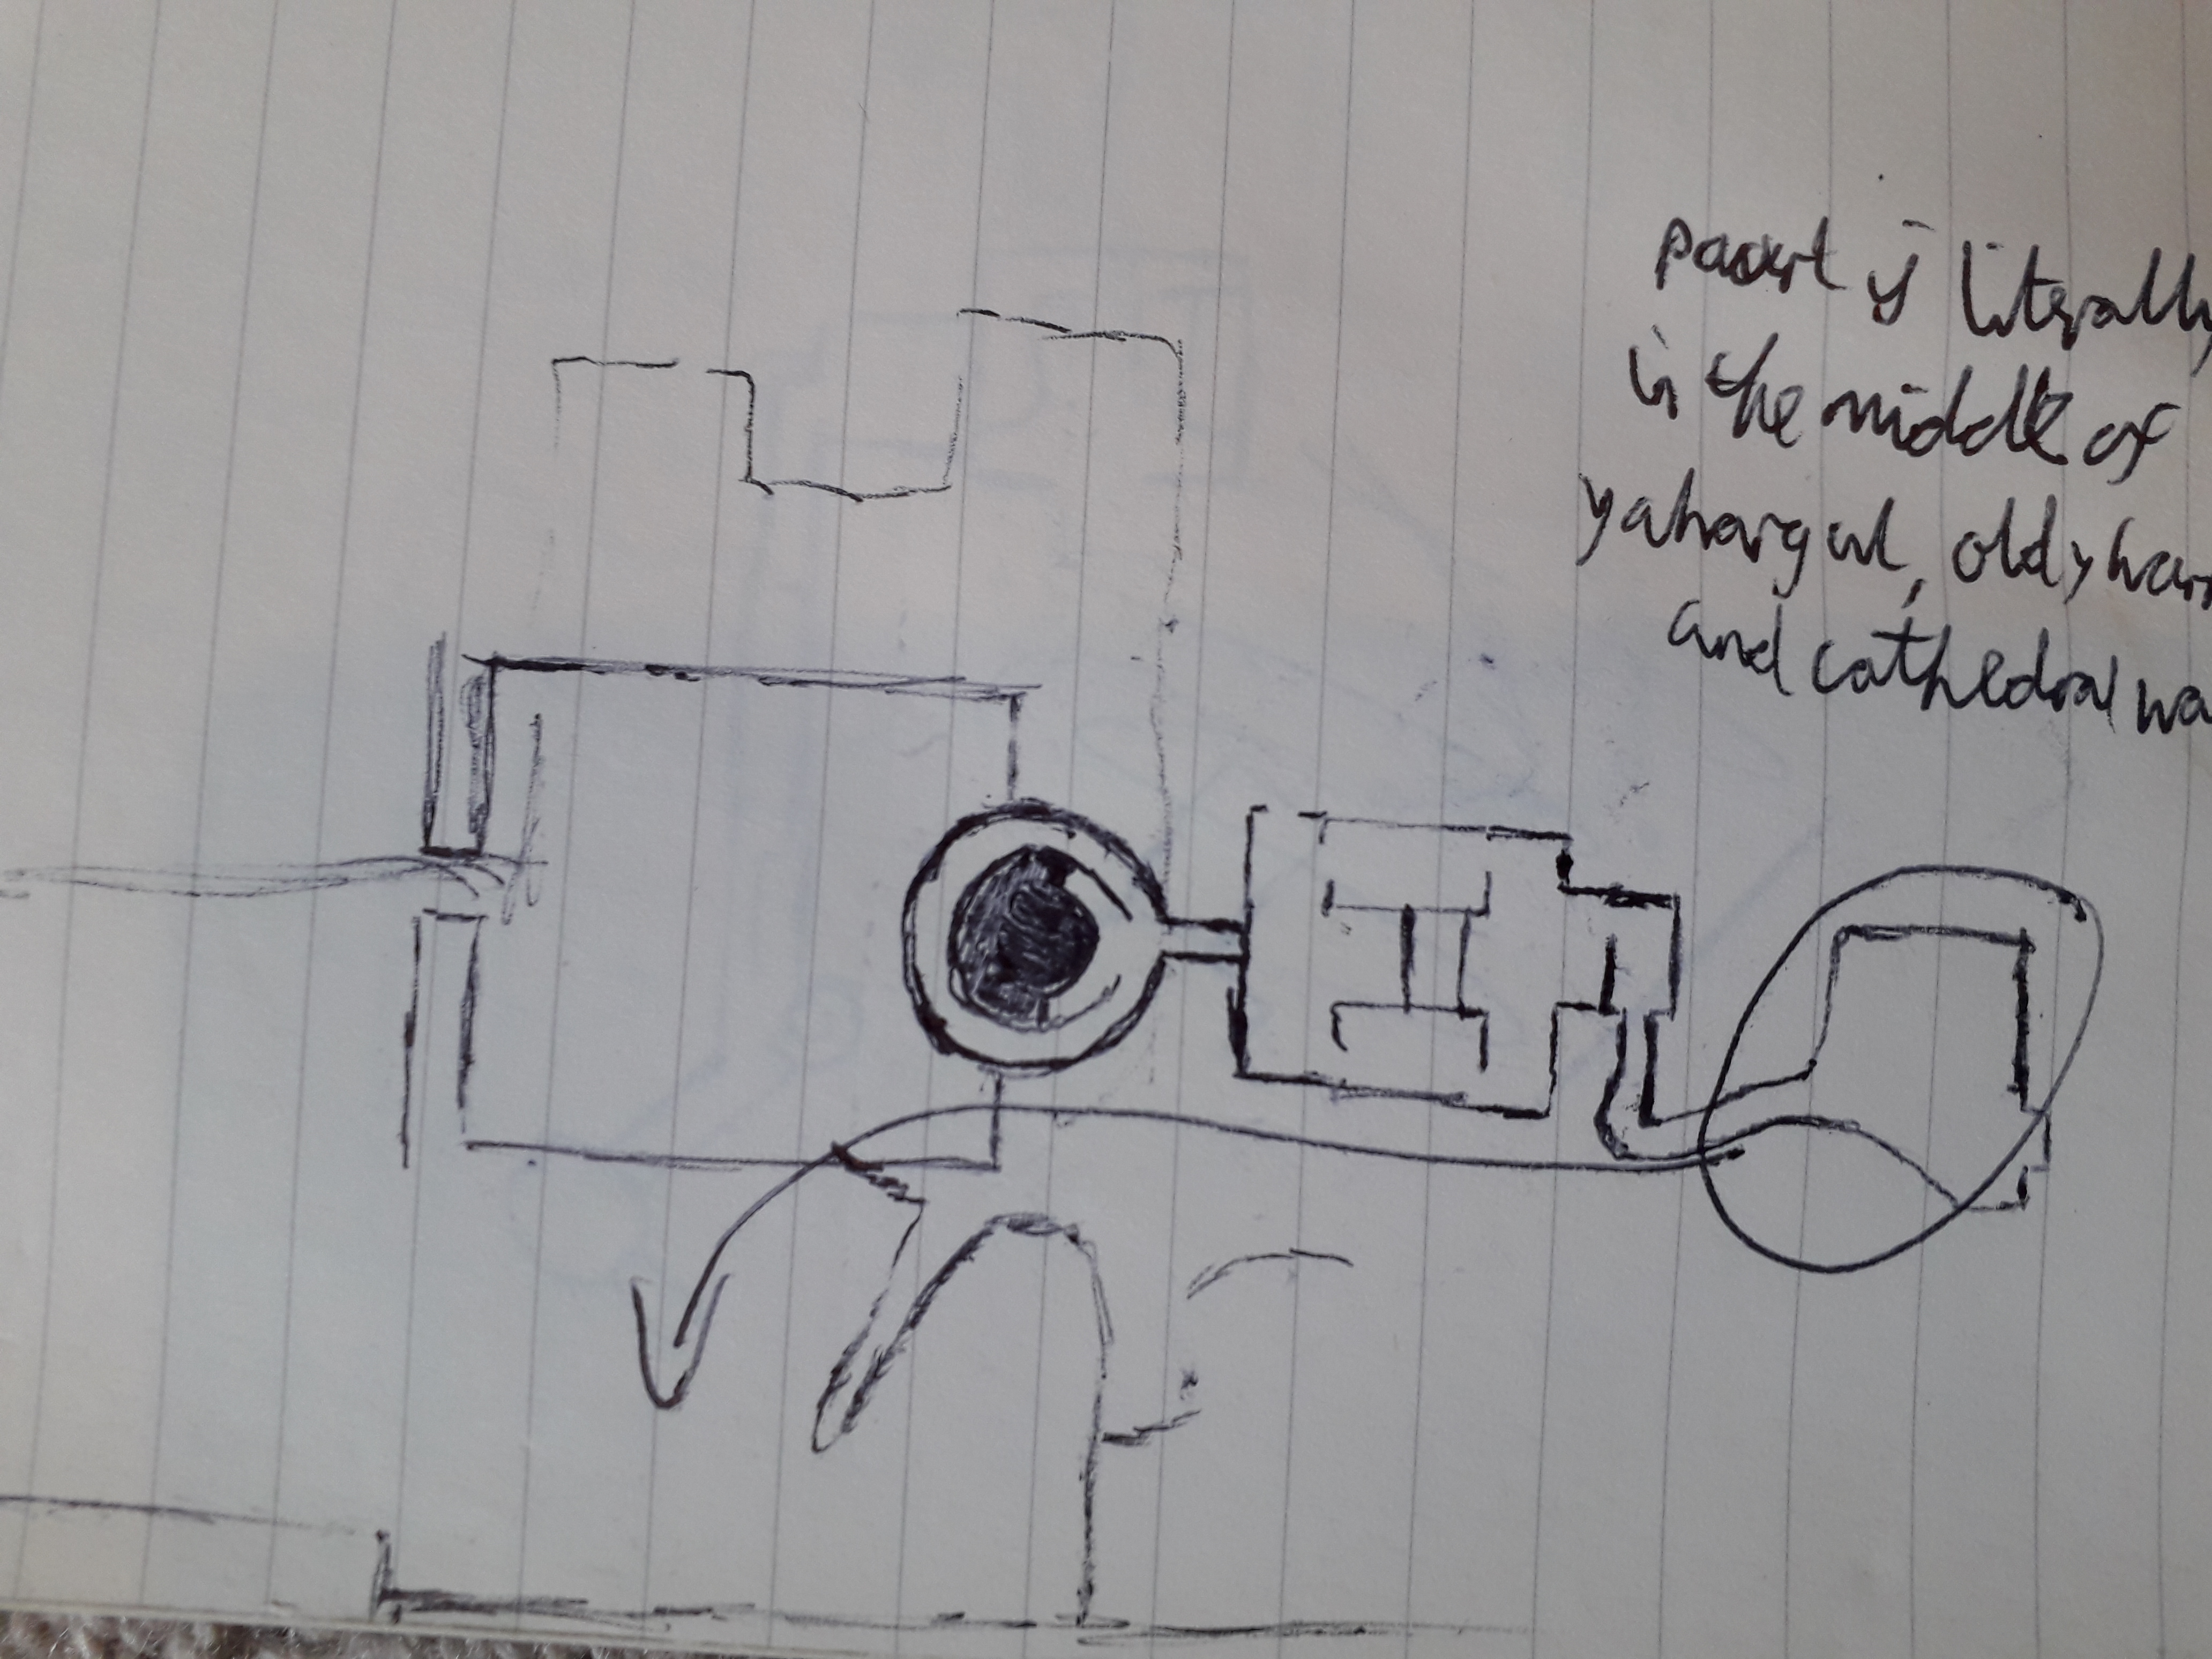 part is literally
in the middle of
yahargul, old yharn
and cathedral wa